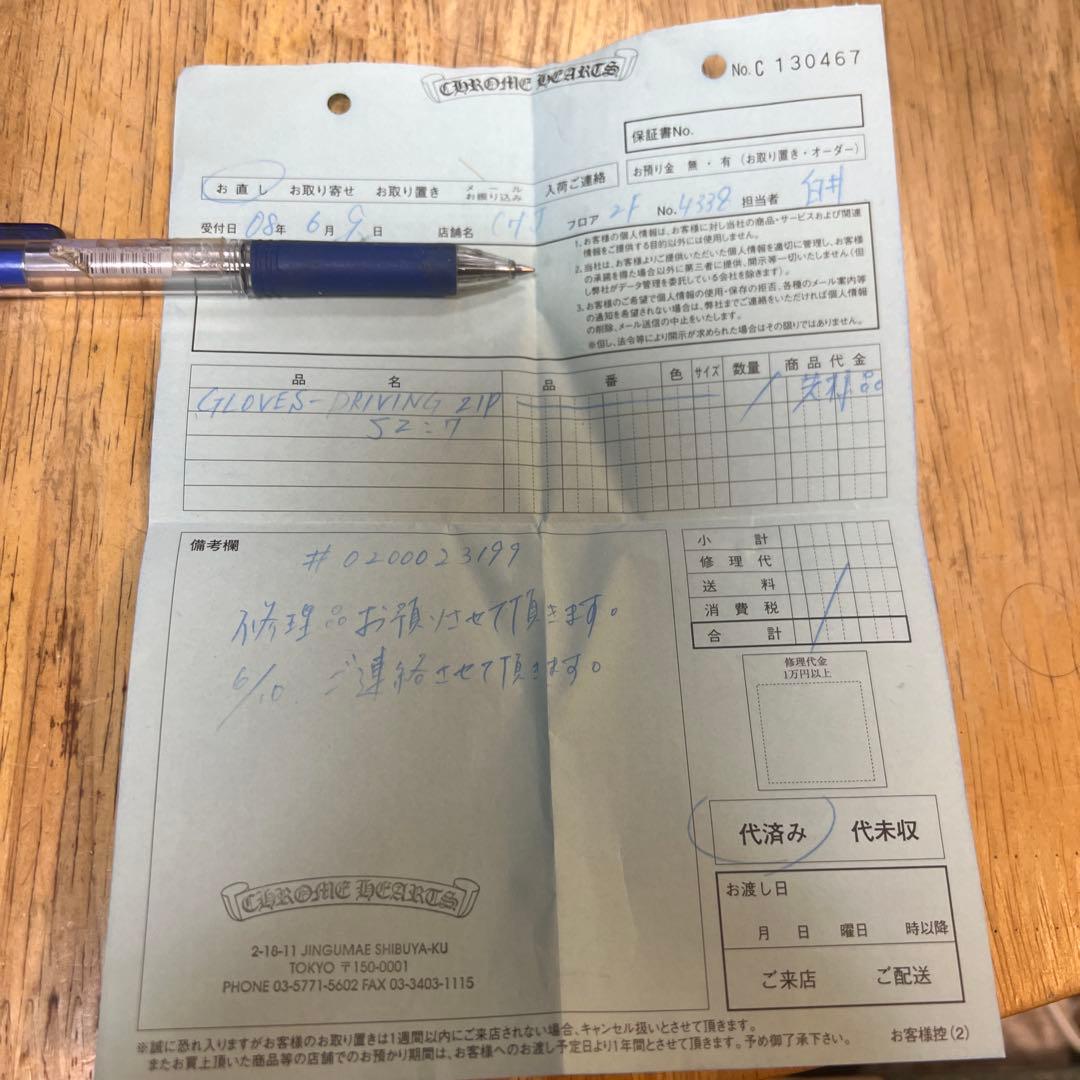 CHROME HEARTS
No. C 130467
保証書No.
お預り金 無・有(お取り置き・オーダー)
お直し お取り寄せ お取り置き メール お振り込み 入荷ご連絡
受付日 08年 6月 9日 店舗名 フロア 2F No. 4338 担当者 白井
1. お客様の個人情報は、お客様に対し当社の商品・サービスおよび関連
情報をご提供する目的以外には使用しません。
2. 当社は、お客様よりご提供いただいた個人情報を適切に管理し、お客様
の承諾を得た場合以外に第三者に提供、開示等一切いたしません(但
し弊社がデータ管理を委託している会社を除きます)。
3. お客様のご希望で個人情報の使用・保存の拒否、各種のメール案内等
の通知を希望されない場合は、弊社までご連絡をいただければ個人情報
の削除、メール送信の中止をいたします。
※但し、法令等により開示が求められた場合はその限りではありません。
品名 品番 色 サイズ 数量 商品代金
GLOVES-DRIVING ZIP
SZ:7
備考欄
# 0200023199
修理品お預りさせて頂きます。
6/10 ご連絡させて頂きます。
小計
修理代
送料
消費税
合計
修理代金
1万円以上
代済み 代未収
お渡し日
月 日 曜日 時以降
ご来店 ご配送
CHROME HEARTS
2-18-11 JINGUMAE SHIBUYA-KU
TOKYO 〒150-0001
PHONE 03-5771-5602 FAX 03-3403-1115
※誠に恐れ入りますがお客様のお取り置きは1週間以内にご来店されない場合、キャンセル扱いとさせて頂きます。
またお買上頂いた商品等の店舗でのお預かり期間は、お客様へのお渡し予定日より1年間とさせて頂きます。予め御了承下さい。
お客様控(2)